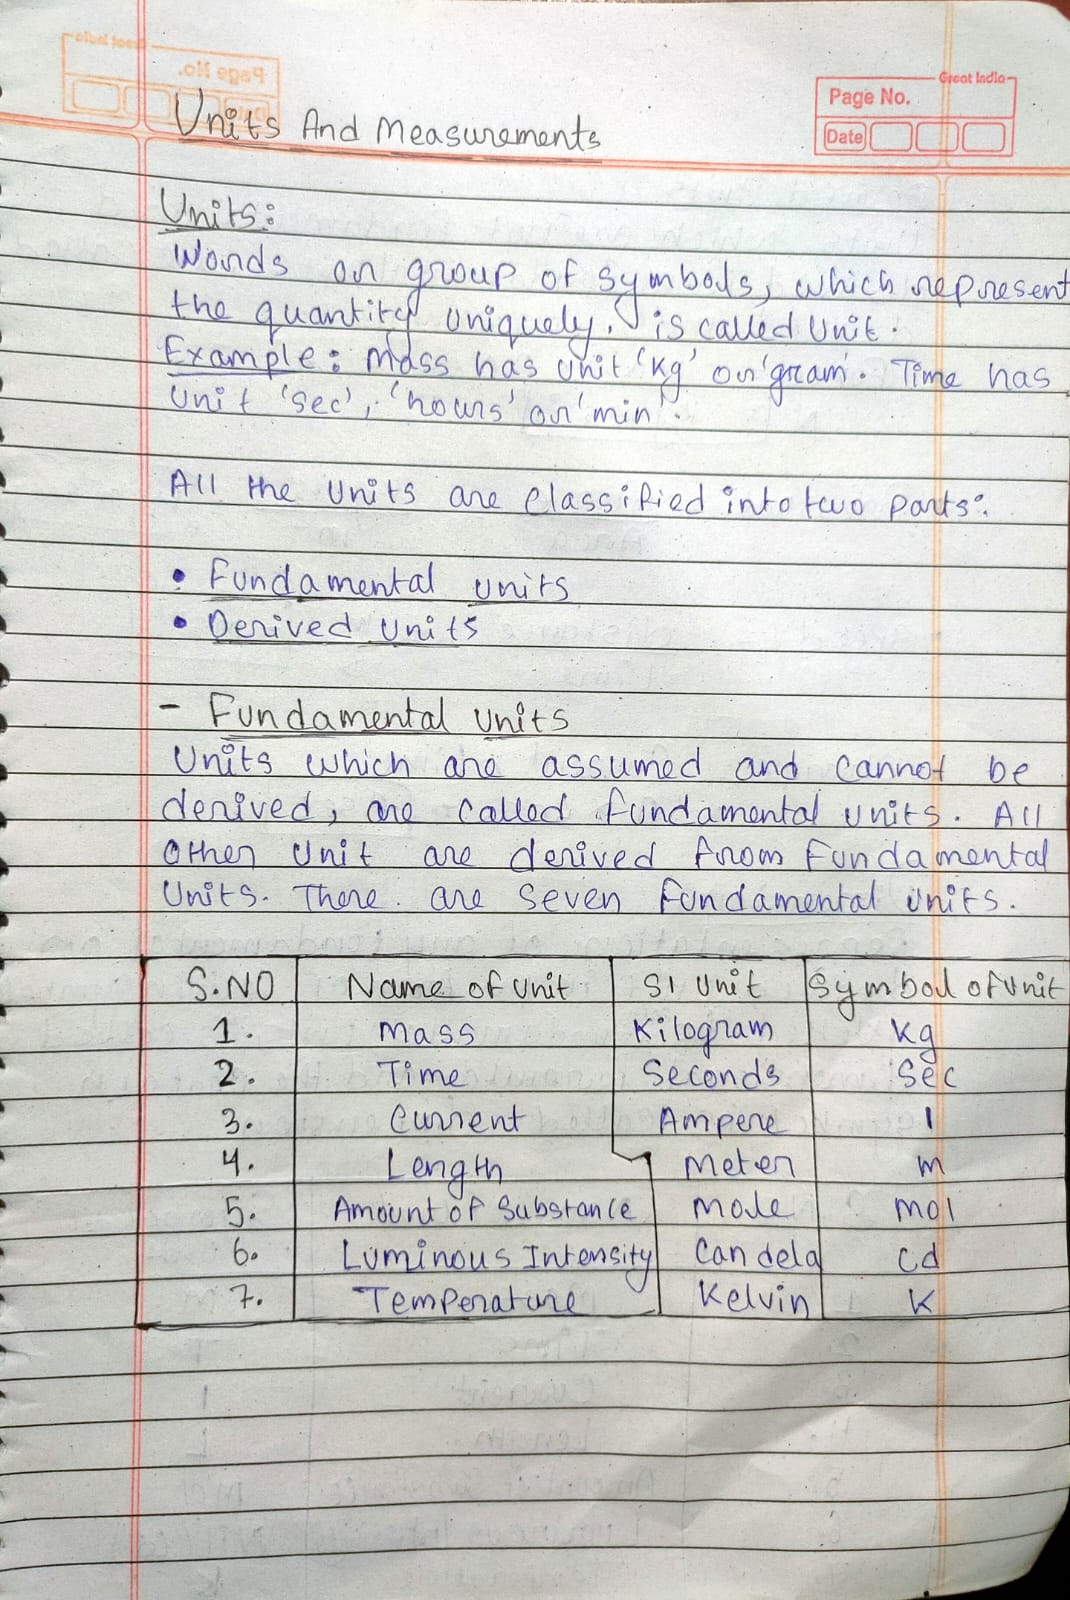 Great India
Page No.
Date
Units And Measurements
Units:
Words or group of symbols, which represent
the quantity uniquely, is called Unit.
Example: Mass has unit 'kg' or 'gram'. Time has
Unit 'sec', 'hours' or 'min'.
All the Units are classified into two parts:
• Fundamental units
• Derived Units
- Fundamental units
Units which are assumed and cannot be
derived, are called fundamental units. All
Other Unit are derived from Fundamental
Units. There are seven fundamental units.
S.NO Name of unit SI Unit Symbol of Unit
1. Mass Kilogram Kg
2. Time Seconds Sec
3. Current Ampere I
4. Length Meter m
5. Amount of Substance Mole mol
6. Luminous Intensity Candela Cd
7. Temperature Kelvin K